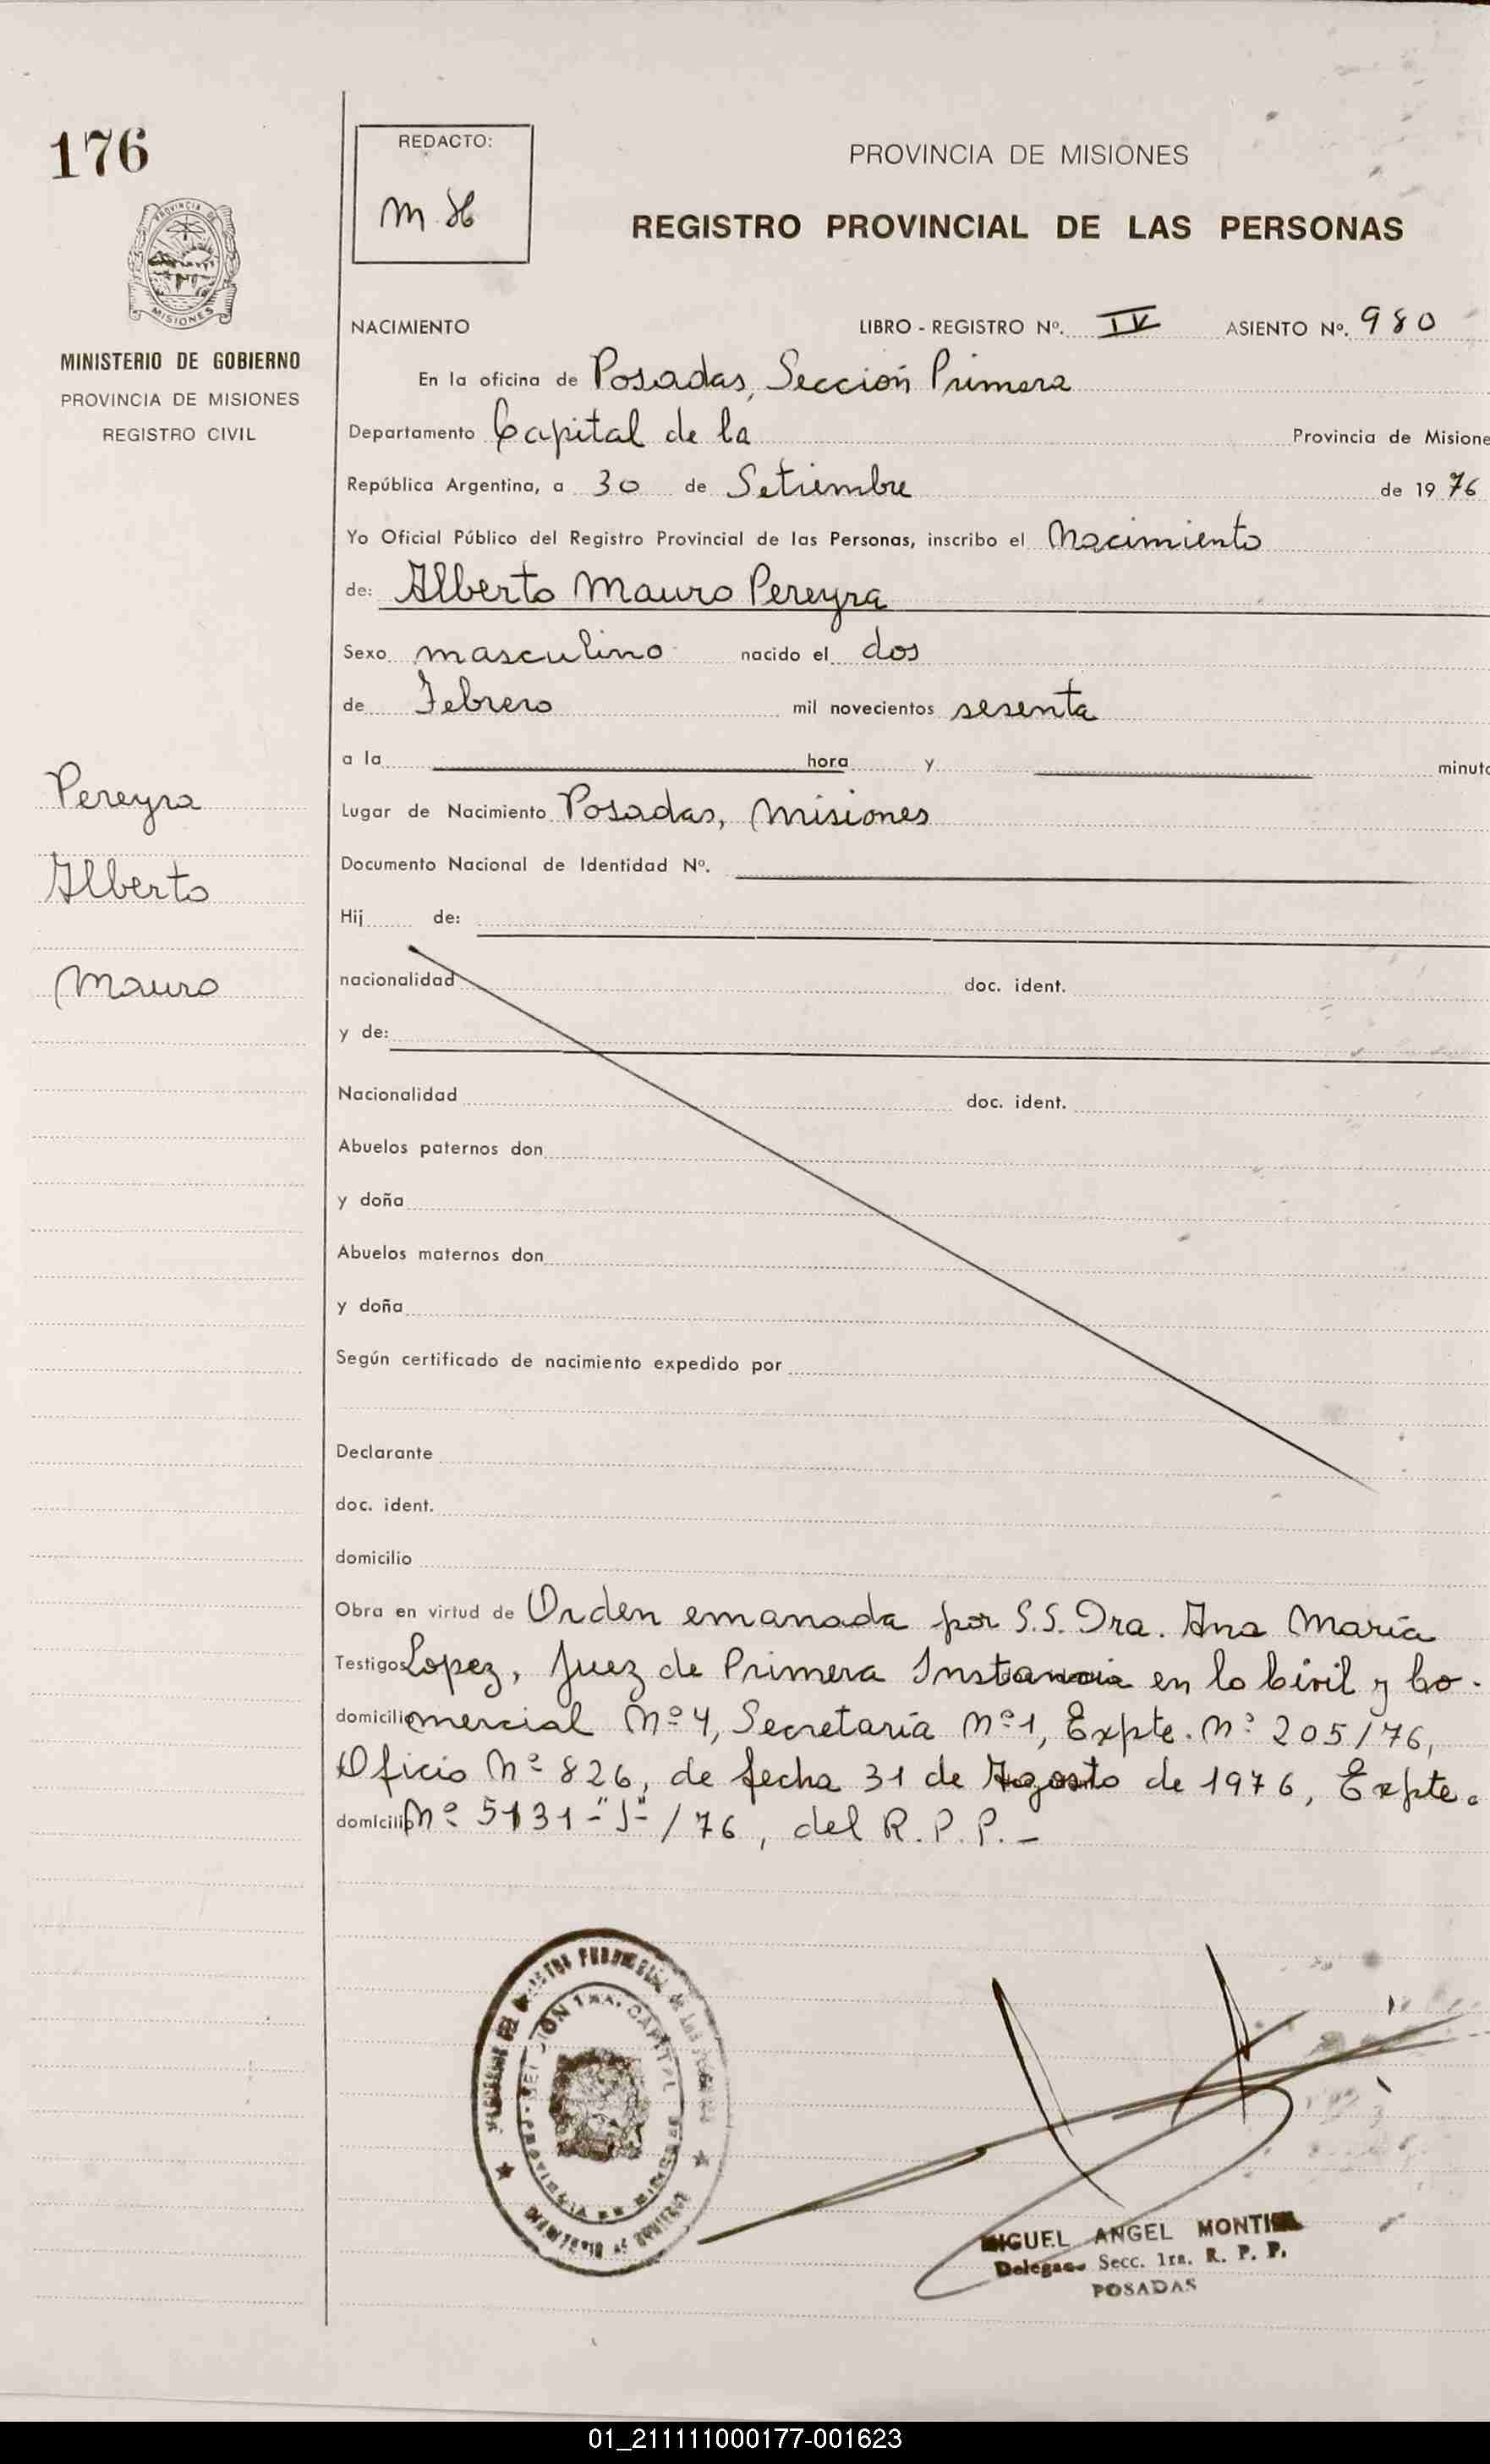 176
REDACTO:
M H
PROVINCIA DE MISIONES
REGISTRO PROVINCIAL DE LAS PERSONAS
PROVINCIA DE
MISIONES
MINISTERIO DE GOBIERNO
PROVINCIA DE MISIONES
REGISTRO CIVIL
NACIMIENTO LIBRO - REGISTRO Nº. IV ASIENTO Nº. 980
En la oficina de Posadas, Sección Primera
Departamento Capital de la Provincia de Misione
República Argentina, a 30 de Setiembre de 1976
Yo Oficial Público del Registro Provincial de las Personas, inscribo el Nacimiento
de: Alberto Mauro Pereyra
Sexo masculino nacido el dos
de Febrero mil novecientos sesenta
a la hora y minuto
Pereyra
Alberto
Mauro
Lugar de Nacimiento Posadas, Misiones
Documento Nacional de Identidad Nº.
Hij de:
nacionalidad doc. ident.
y de:
Nacionalidad doc. ident.
Abuelos paternos don
y doña
Abuelos maternos don
y doña
Según certificado de nacimiento expedido por
Declarante
doc. ident.
domicilio
Obra en virtud de Orden emanada por S.S. Dra. Ana María
Testigos Lopez, Juez de Primera Instancia en lo Civil y Co-
domicilio mercial Nº 4, Secretaría Nº 1, Expte. Nº 205/76,
Oficio Nº 826, de fecha 31 de Agosto de 1976, Expte.
domicilio Nº 5131-"J"-/76, del R.P.P.-
SECCION 1ra. CAPITAL
PROVINCIA DE MISIONES
MIGUEL ANGEL
Secc. 1ra. R. P. P.
POSADAS
01_211111000177-001623